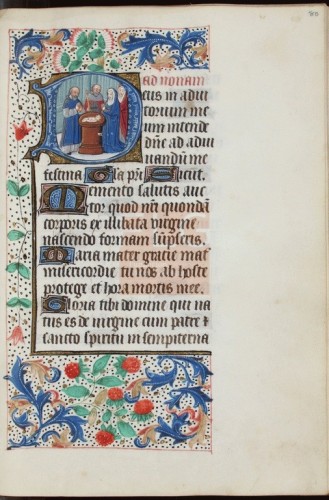 ad nonam
Deus in adiu
torium me
um intende
dñe ad adiu
uandũ me
festina Gľa pr̃i Sicut.
Memento salutis auc
tor quod nr̃i quondã
corporis ex illibata uirgine
nascendo formam sũpseris.
Maria mater gracie mat̾
misericordie tu nos ab hoste
protege et hora mortis
Gloria tibi domine qui na
tus es de uirgine cum patre &
sancto spiritu in sempiterna